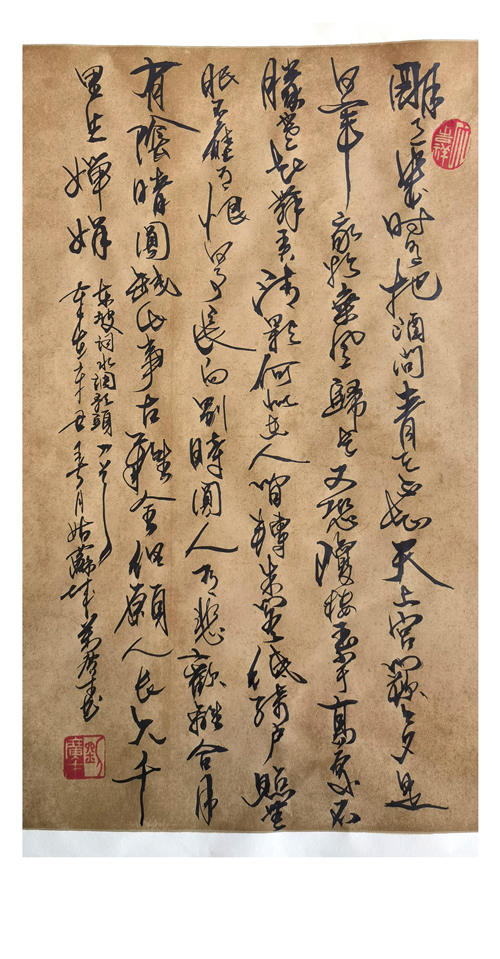 明月幾時有把酒問青天不知天上宮闕今夕是
何年我欲乘風歸去又恐瓊樓玉宇高處不
勝寒起舞弄清影何似在人間轉朱閣低綺戶照無
眠不應有恨何事長向別時圓人有悲歡離合月
有陰晴圓缺此事古難全但願人長久千
里共嬋娟
東坡詞水調歌頭
辛丑春月姑蘇城